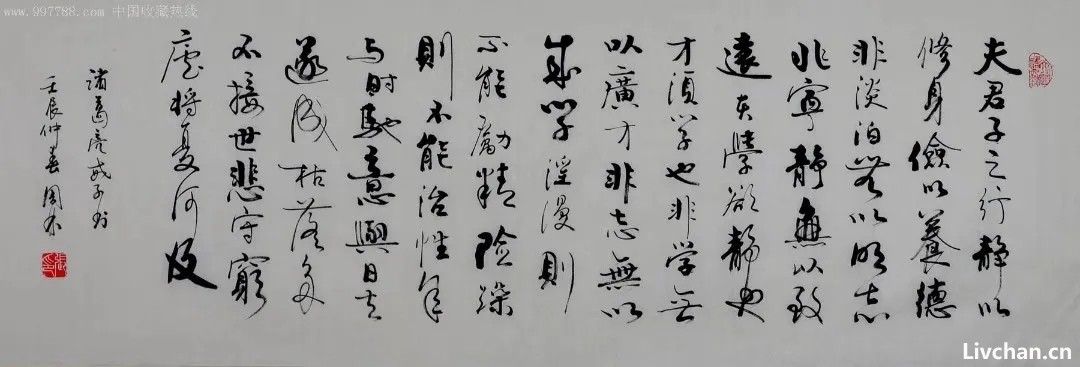 www.997788.com 中国收藏热线
夫君子之行静以
修身儉以養德
非淡泊无以明志
非寧静無以致
遠夫學欲静也
才須学也非学无
以廣才非志無以
成学淫漫則
不能勵精險躁
則不能治性年
与时馳意與日去
遂成枯落多
不接世悲守窮
廬将复何及
诸葛亮诫子书
壬辰仲春周
Livchan.cn